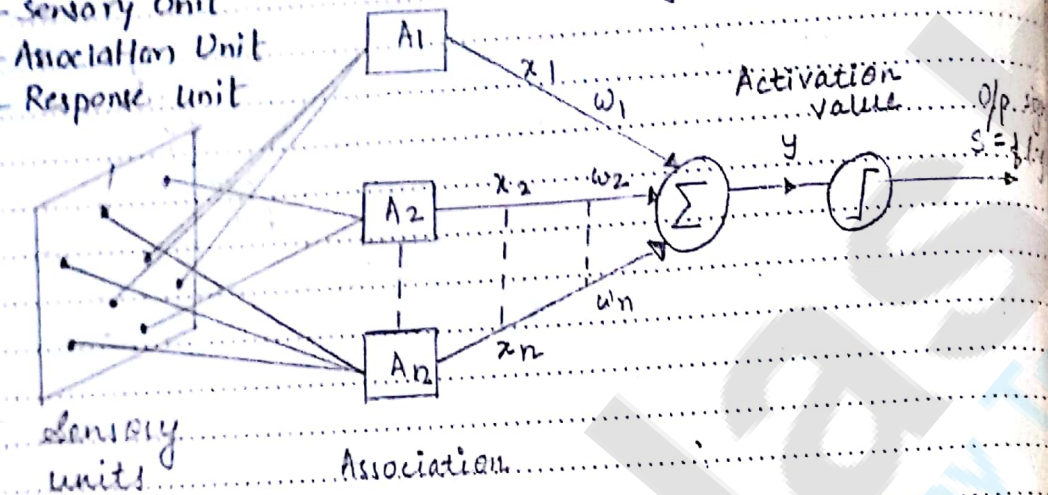 - Sensory Unit
- Association Unit
- Response unit
A1
x1
w1
Activation
value
O/p
S = f
y
A2
x2
w2
Σ
wn
An
xn
Sensory
units
Association